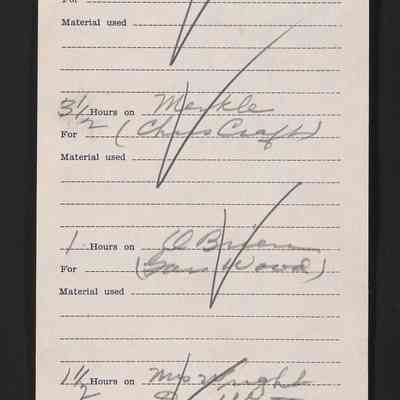 For
Material used
3½ Hours on Merkle
For (Chris Craft)
Material used
1 Hours on O'Brien
For (Gar Wood)
Material used
1½ Hours on Mrs Wright